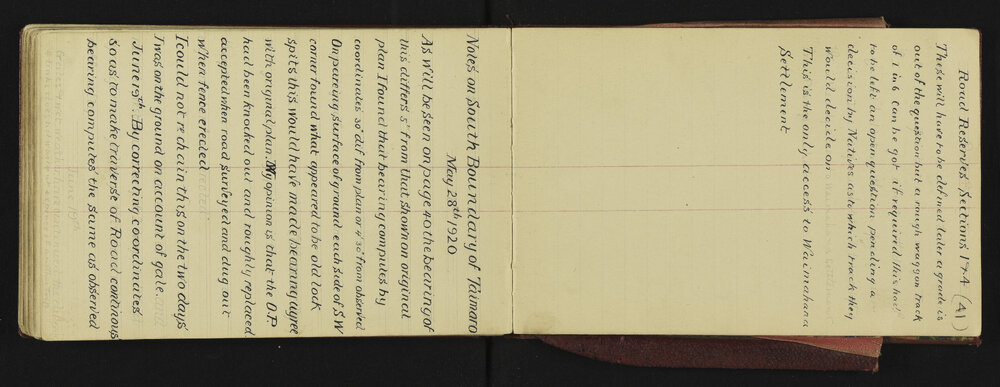 Road Reserves Sections 1 & 4 (41)
These will have to be defined later a grade is
out of the question but a rough waggon track
of 1 in 6 can be got if required this had
to be left an open question pending a
decision by Natives as to which track they
would decide on
This is the only access to Waimahana
Settlement
Notes on South Boundary of Taimaro
May 28th 1920
As will be seen on page 40 the bearing of
this differs 5' from that shown on original
plan I found that bearing computes by
coordinates 30" dif from plan or 4'30" from observed
On paring surface of ground each side of S.W
corner found what appeared to be old lock
spits this would have made bearing agree
with original plan. My opinion is that the O.P.
had been knocked out and roughly replaced
accepted when road surveyed and dug out
when fence erected
I could not rechain this on the two days
I was on the ground on account of gale.
June 19th. By correcting coordinates
so as to make traverse of Road continous
bearing computes the same as observed